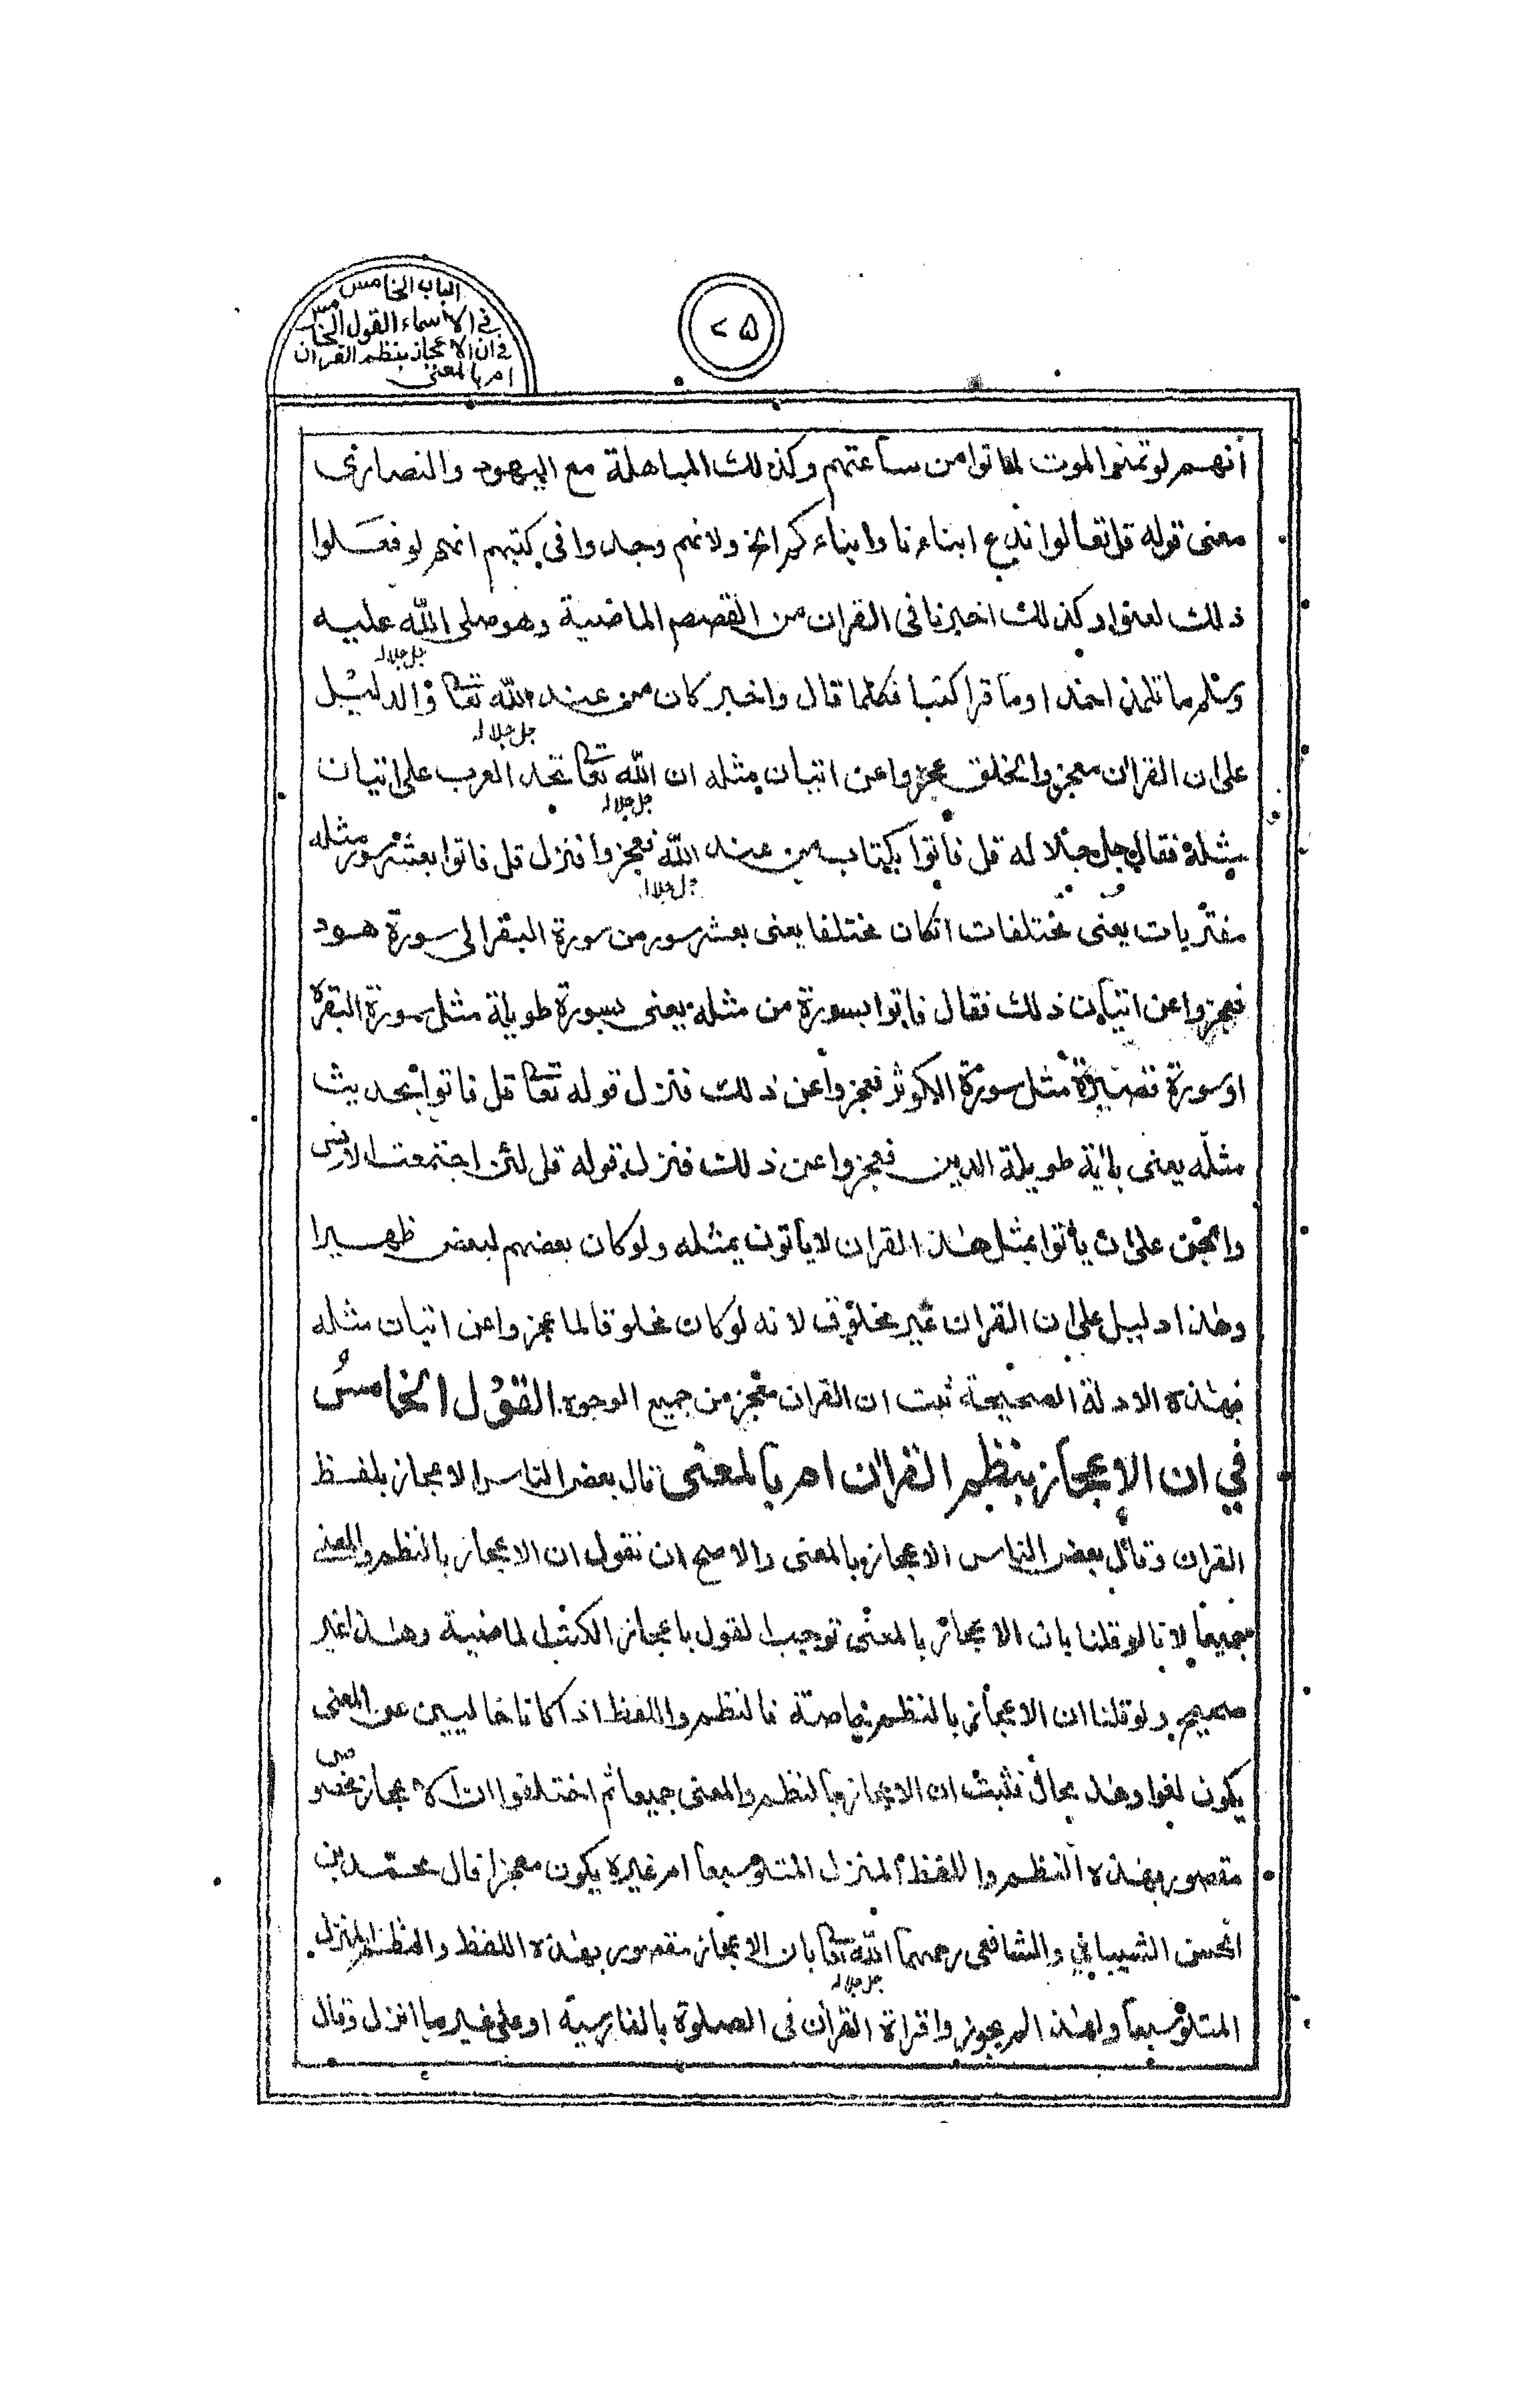 الباب الخامس
في الأسماء القول الخامس
في ان الاعجاز بنظم القران
ام بالمعنى
٧٥
انهم لو تمنوا الموت لماتوا من ساعتهم وكذلك المباهلة مع اليهود والنصارى
معنى قوله قل تعالوا ندع ابناءنا وابناءكم الخ ولانهم وجدوا في كتبهم انهم لو فعلوا
ذلك لعنوا وكذلك اخبرنا فى القران من القصص الماضية وهو صلى الله عليه
وسلم ما تلمذ احدا وما قرا كتبا فكلما قال واخبر كان من عند الله جل جلاله تعا والدليل
على ان القران معجز والخلق عجزوا عن اتيان مثله ان الله جل جلاله تعا تحد العرب على اتيان
مثله فقال جل جلاله قل فاتوا بكتاب من عند الله جل جلاله فعجزوا فنزل قل فاتوا بعشر سور مثله
مفتريات يعنى مختلفات اتكان مختلفا يعنى بعشر سور من سورة البقر الى سورة هود جل جلاله
فعجزوا عن اتيان ذلك فقال فاتوا بسورة من مثله يعنى بسورة طويلة مثل سورة البقرة
او سورة قصيرة مثل سورة الكوثر فعجزوا عن ذلك فنزل قوله تعا قل فاتوا بحديث
مثله يعنى باية طويلة الدين فعجزوا عن ذلك فنزل قوله قل لئن اجتمعت الانس
والجن على ان ياتوا بمثل هذا القران لا ياتون بمثله ولو كان بعضهم لبعض ظهيرا
وهذا دليل على ان القران غير مخلوق لانه لو كان مخلوقا لما عجزوا عن اتيان مثله
فبهذه الادلة الصحيحة ثبت ان القران معجز من جميع الوجوه القول الخامس
في ان الاعجاز بنظم القران ام بالمعنى قال بعض الناس الاعجاز بلفظ
القران وقال بعض الناس الاعجاز بالمعنى والاصح ان نقول ان الاعجاز بالنظم والمعنى
جميعا لانا لو قلنا بان الاعجاز بالمعنى توجب القول باعجاز الكتب الماضية وهذا غير
صحيح ولو قلنا ان الاعجاز بالنظم خاصة فالنظم واللفظ اذا كانا خاليين عن المعنى
يكون لغوا وهذ محال فثبت ان الاعجاز بالنظم والمعنى جميعا ثم اختلفوا ان الاعجاز مخصوص
مقصور بهذه النظم واللفظ المنزل المتلو سبعا ام غيره يكون معجزا قال محمد بن
الحسن الشيباني والشافعى رحمهما الله تعا جل جلاله بان الاعجاز مقصور بهذه اللفظ والنظم المنزل
المتلو سبعا ولهذا لم يجوزوا قراة القران فى الصلوة بالفارسية او على غير ما انزل وقال